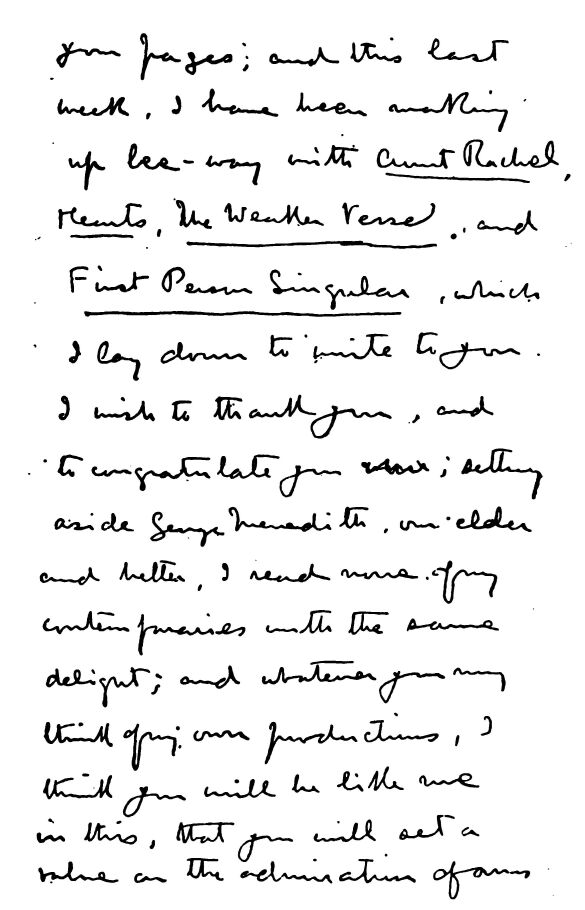 your pages; and this last
week, I have been making
up lee-way with Aunt Rachel,
Hearts, The Weather Verse, and
First Person Singular, which
I lay down to write to you.
I wish to thank you, and
to congratulate you; setting
aside George Meredith, our elder
and better, I read none of my
contemporaries with the same
delight; and whatever you may
think of my own productions, I
think you will be like me
in this, that you will set a
value on the admiration of one